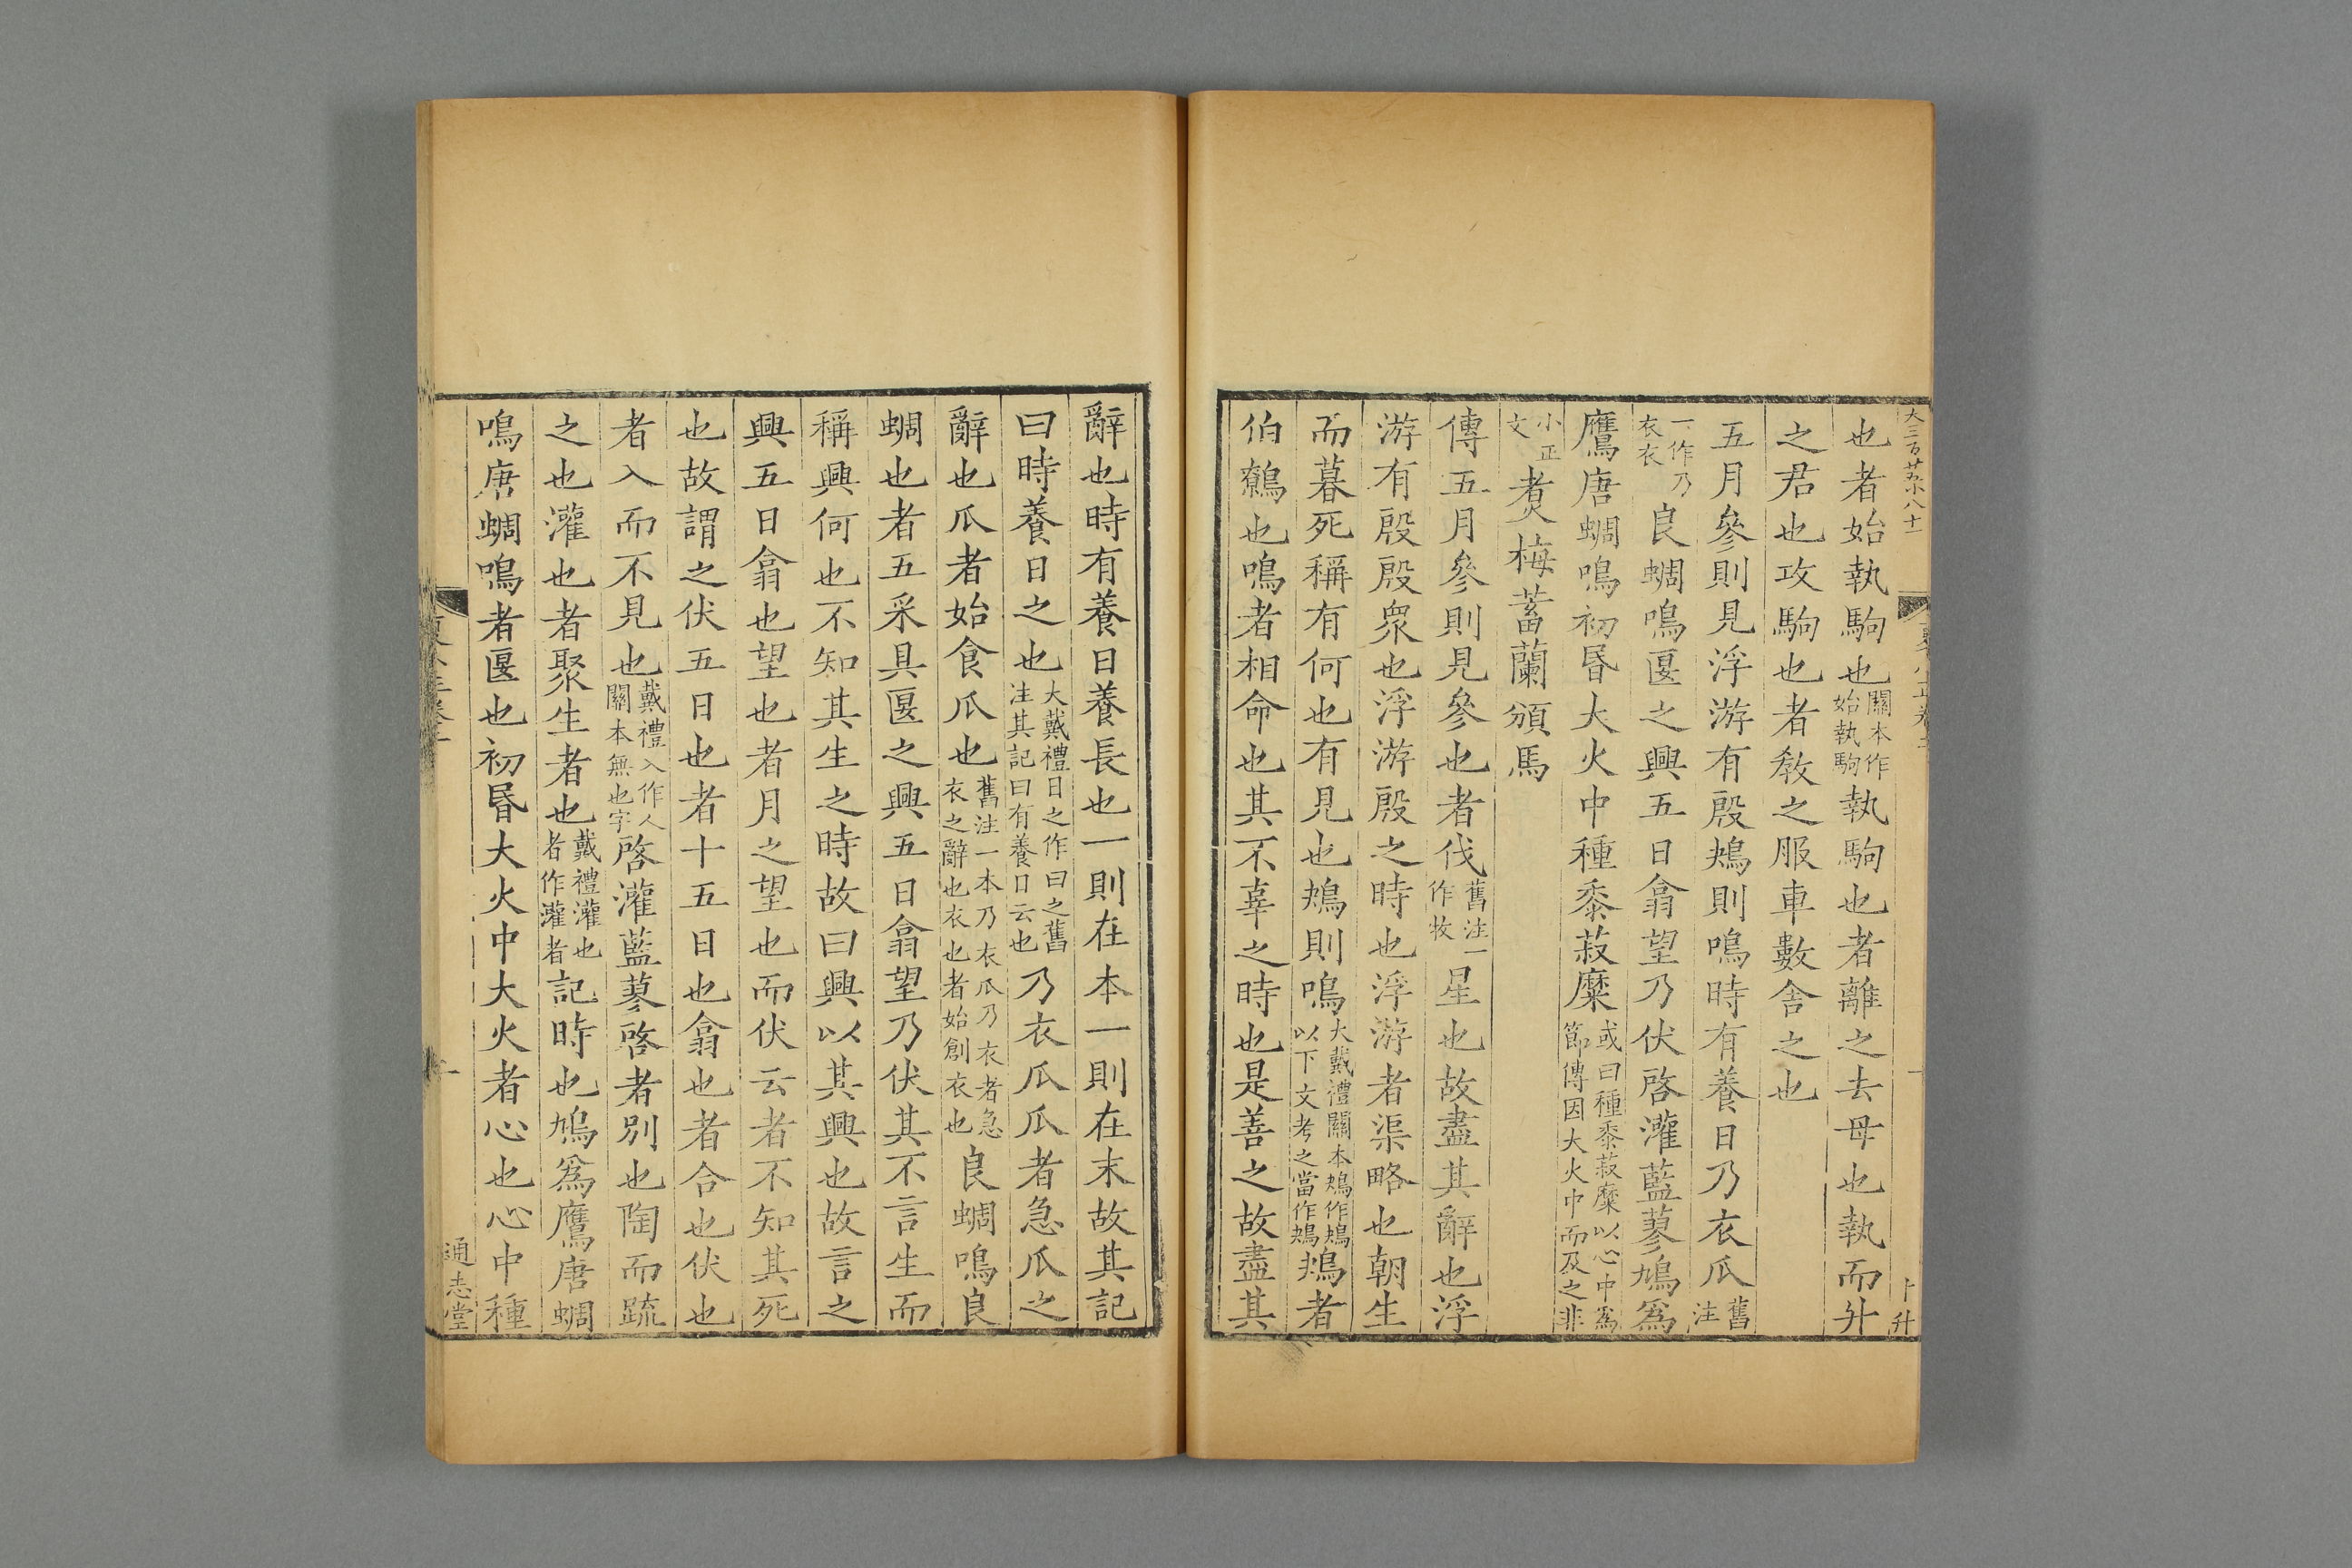 大三百廿五小八十一
也者始執駒也關本作始執駒執駒也者離之去母也執而升
之君也攻駒也者教之服車數舍之也
五月參則見浮游有殷鴂則鳴時有養日乃衣瓜舊注
一作乃衣衣良蜩鳴匽之興五日翕望乃伏啓灌藍蓼鳩爲
鷹唐蜩鳴初昬大火中種黍菽糜或曰種黍菽糜以心中爲節傳因大火中而及之非
小正文煑梅蓄蘭頒馬
傳五月參則見參也者伐舊注一作牧星也故盡其辭也浮
游有殷殷衆也浮游殷之時也浮游者渠略也朝生
而暮死稱有何也有見也鴂則鳴大戴禮關本鴂作鴂以下文考之當作鴂鴂者
伯鷯也鳴者相命也其不辜之時也是善之故盡其
辭也時有養日養長也一則在本一則在末故其記
曰時養日之也大戴禮日之作曰之舊注其記曰有養日云也乃衣瓜瓜者急瓜之
辭也瓜者始食瓜也舊注一本乃衣瓜乃衣者急衣之辭也衣也者始創衣也良蜩鳴良
蜩也者五采具匽之興五日翕望乃伏其不言生而
稱興何也不知其生之時故曰興以其興也故言之
興五日翕也望也者月之望也而伏云者不知其死
也故謂之伏五日也者十五日也翕也者合也伏也
者入而不見也戴禮入作人關本無也字啓灌藍蓼啓者別也陶而疏
之也灌也者聚生者也戴禮灌也者作灌者記時也鳩爲鷹唐蜩
鳴唐蜩鳴者匽也初昬大火中大火者心也心中種
通志堂